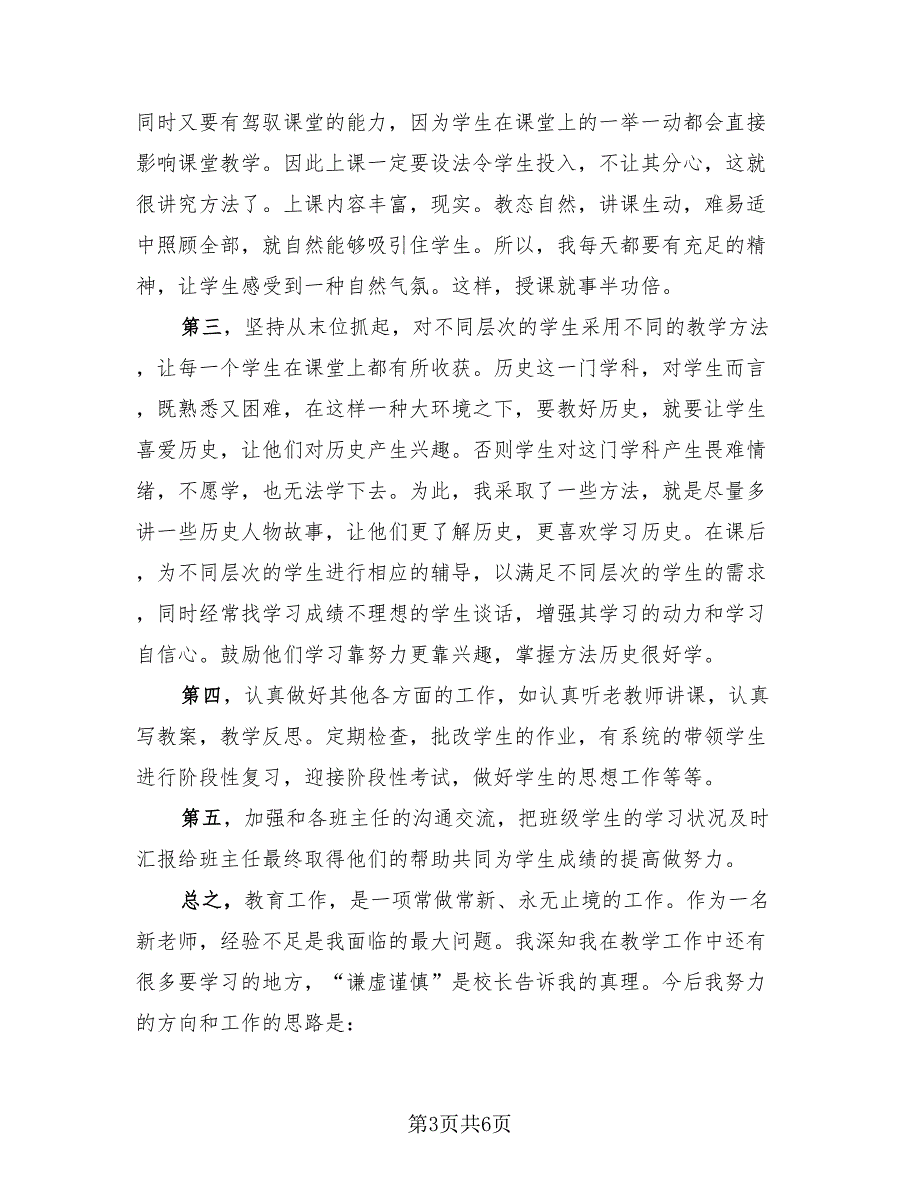 同时又要有驾驭课堂的能力，因为学生在课堂上的一举一动都会直接
影响课堂教学。因此上课一定要设法令学生投入，不让其分心，这就
很讲究方法了。上课内容丰富，现实。教态自然，讲课生动，难易适
中照顾全部，就自然能够吸引住学生。所以，我每天都要有充足的精
神，让学生感受到一种自然气氛。这样，授课就事半功倍。
第三，坚持从末位抓起，对不同层次的学生采用不同的教学方法
，让每一个学生在课堂上都有所收获。历史这一门学科，对学生而言
，既熟悉又困难，在这样一种大环境之下，要教好历史，就要让学生
喜爱历史，让他们对历史产生兴趣。否则学生对这门学科产生畏难情
绪，不愿学，也无法学下去。为此，我采取了一些方法，就是尽量多
讲一些历史人物故事，让他们更了解历史，更喜欢学习历史。在课后
，为不同层次的学生进行相应的辅导，以满足不同层次的学生的需求
，同时经常找学习成绩不理想的学生谈话，增强其学习的动力和学习
自信心。鼓励他们学习靠努力更靠兴趣，掌握方法历史很好学。
第四，认真做好其他各方面的工作，如认真听老教师讲课，认真
写教案，教学反思。定期检查，批改学生的作业，有系统的带领学生
进行阶段性复习，迎接阶段性考试，做好学生的思想工作等等。
第五，加强和各班主任的沟通交流，把班级学生的学习状况及时
汇报给班主任最终取得他们的帮助共同为学生成绩的提高做努力。
总之，教育工作，是一项常做常新、永无止境的工作。作为一名
新老师，经验不足是我面临的最大问题。我深知我在教学工作中还有
很多要学习的地方，“谦虚谨慎”是校长告诉我的真理。今后我努力
的方向和工作的思路是：
第3页共6页